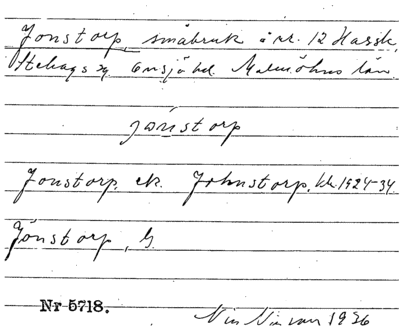 Jonstorp, småbruk å nr. 12 Hassle,
Stehags sn Onsjö hd. Malmöhus län.
jònstorp
Jonstorp. ek. Johnstorp. kb. 1924-34
Jönstorp, G.
Nr 5718.
1936